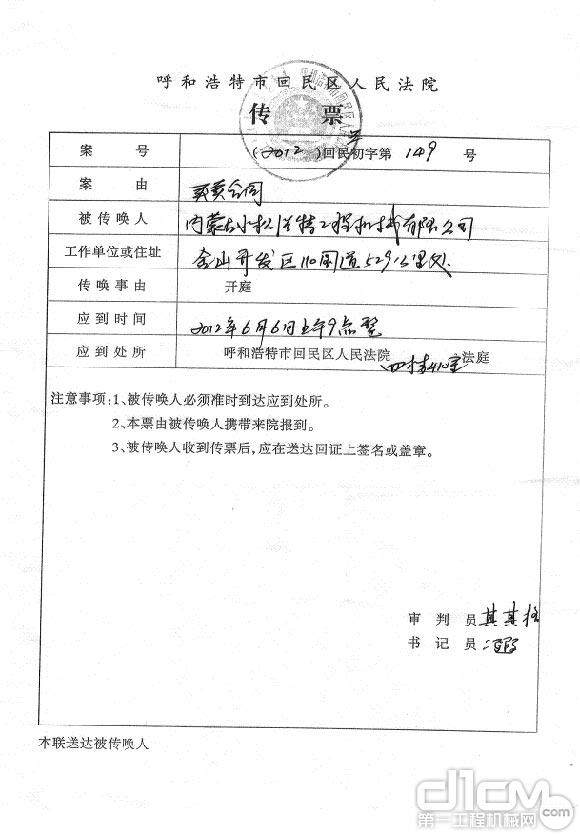 呼和浩特市回民区人民法院
传 票
案 号 (2012)回民初字第149号
案 由 买卖合同
被传唤人 内蒙古小松浩特工程机械有限公司
工作单位或住址 金山开发区110国道529公里处
传唤事由 开庭
应到时间 2012年6月6日上午9点整
应到处所 呼和浩特市回民区人民法院四楼410室法庭
注意事项:1、被传唤人必须准时到达应到处所。
2、本票由被传唤人携带来院报到。
3、被传唤人收到传票后,应在送达回证上签名或盖章。
审 判 员
书 记 员
本联送达被传唤人
d1cm
第一工程机械网